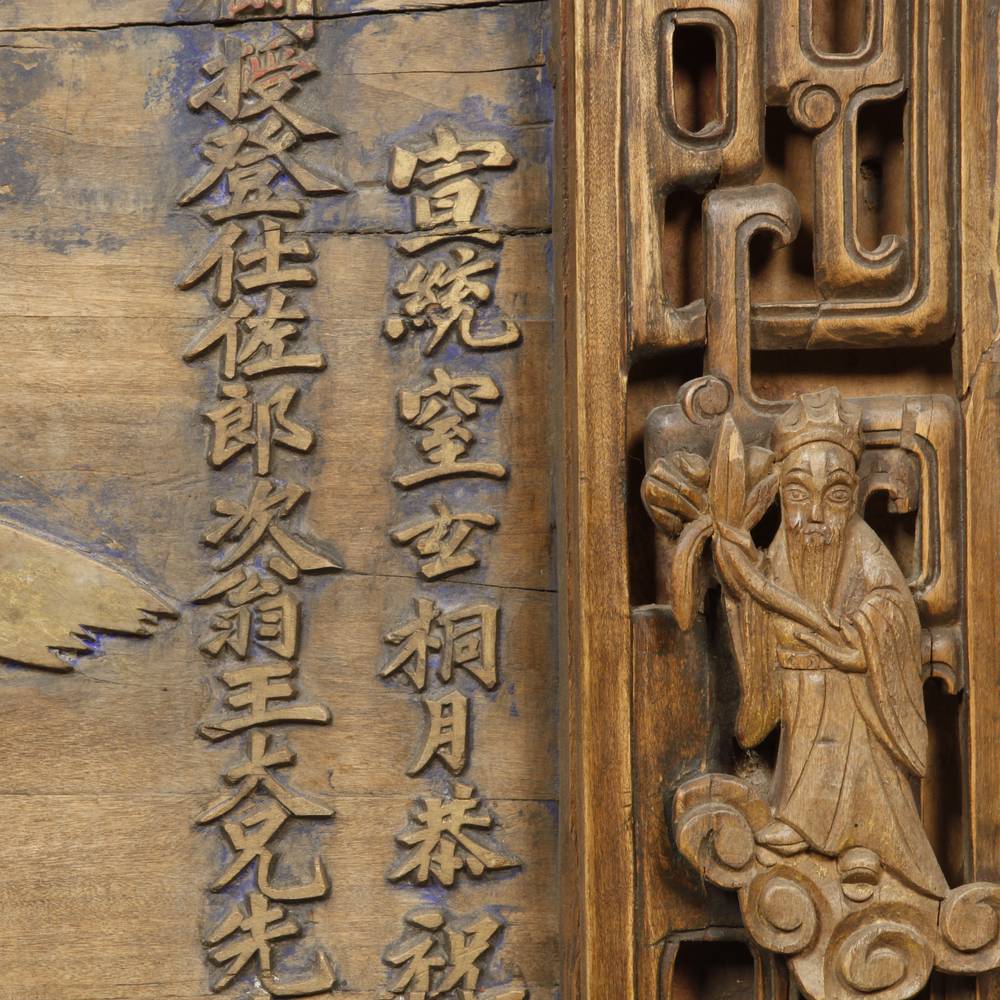 宣統窒玄桐月恭祝
授登仕佐郎次翁王大兄先